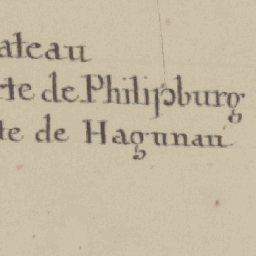 ateau
te de Philipsburg
te de Hagunau